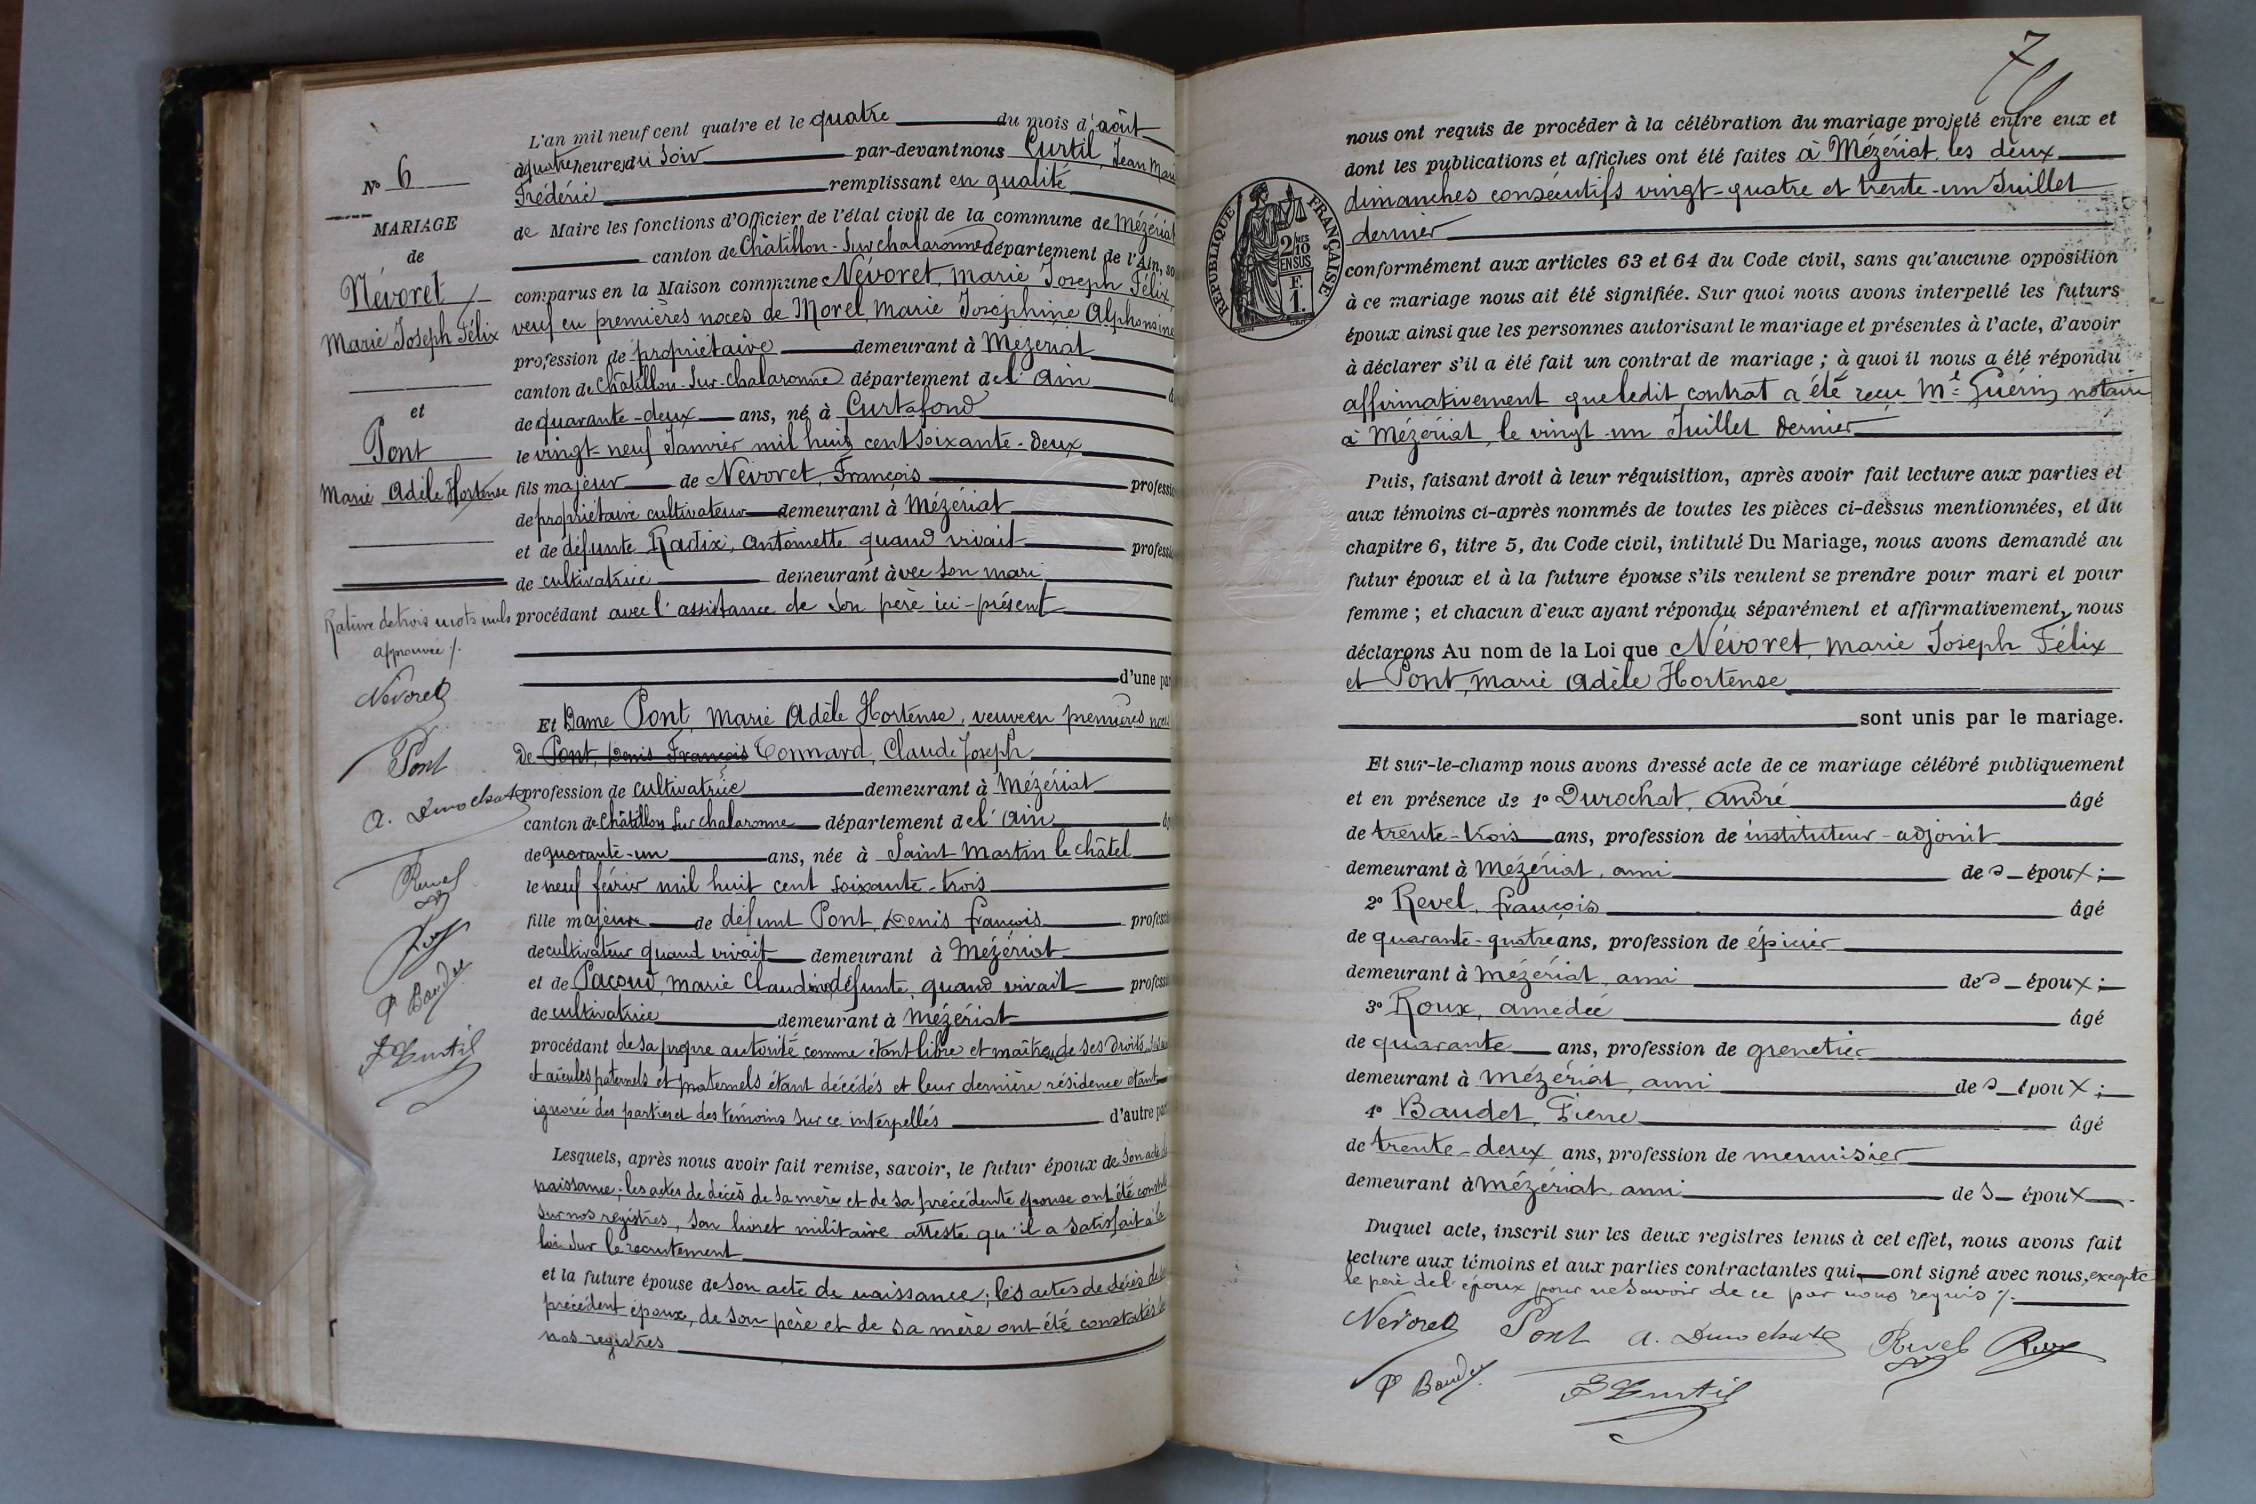 N° 6
MARIAGE
de
Névoret
Marie Joseph Félix
et
Pont
Marie Adèle Hortense
Rature de trois mots nuls
approuvée ./.
Névoret
Pont
A. Durochat
Revel
Roux
P Baudet
F Curtil
L'an mil neuf cent quatre et le quatre du mois d'août
à quatre heures du soir par-devant nous Curtil, Jean Marie
Frédéric remplissant en qualité
de Maire les fonctions d'Officier de l'état civil de la commune de Mézériat
canton de Châtillon-sur-chalaronne département de l'Ain, so
comparus en la Maison commune Névoret, Marie Joseph Félix,
veuf en premières noces de Morel, Marie Joséphine Alphonsine
profession de propriétaire demeurant à Mézériat
canton de Châtillon-sur-chalaronne département de l'Ain
de quarante-deux ans, né à Curtafond
le vingt-neuf Janvier mil huit cent soixante-deux
fils majeur de Névoret, François professi
de propriétaire cultivateur demeurant à Mézériat
et de défunte Radix, Antoinette quand vivait professi
de cultivatrice demeurant avec son mari
procédant avec l'assistance de son père ici-présent
d'une par
Et Dame Pont, Marie Adèle Hortense, veuve en premières noces
de Pont, Denis François Tonnard, Claude Joseph
profession de cultivatrice demeurant à Mézériat
canton de Châtillon sur chalaronne département de l'Ain
de quarante-un ans, née à Saint Martin le châtel
le neuf février mil huit cent soixante-trois
fille majeure de défunt Pont, Denis françois professi
de cultivateur quand vivait demeurant à Mézériat
et de Pacoud, Marie Claudine, défunte, quand vivait professi
de cultivatrice demeurant à Mézériat
procédant de sa propre autorité comme étant libre et maîtresse de ses droits
et aïeules paternels et maternels étant décédés et leur dernière résidence étant
ignorée des parties et des témoins sur ce interpellés d'autre par
Lesquels, après nous avoir fait remise, savoir, le futur époux de son acte de
naissance; les actes de décès de sa mère et de sa précédente épouse ont été constatés
sur nos registres, son livret militaire atteste qu'il a satisfait à la
loi sur le recrutement
et la future épouse de son acte de naissance; les actes de décès de son
précédent époux, de son père et de sa mère ont été constatés sur
nos registres
7
RÉPUBLIQUE FRANÇAISE
2/10
EN SUS
F.
1.
nous ont requis de procéder à la célébration du mariage projeté entre eux et
dont les publications et affiches ont été faites à Mézériat, les deux
dimanches consécutifs vingt-quatre et trente-un Juillet
dernier
conformément aux articles 63 et 64 du Code civil, sans qu'aucune opposition
à ce mariage nous ait été signifiée. Sur quoi nous avons interpellé les futurs
époux ainsi que les personnes autorisant le mariage et présentes à l'acte, d'avoir
à déclarer s'il a été fait un contrat de mariage; à quoi il nous a été répondu
affirmativement que ledit contrat a été reçu Me Guérin notaire
à Mézériat, le vingt-un Juillet dernier
Puis, faisant droit à leur réquisition, après avoir fait lecture aux parties et
aux témoins ci-après nommés de toutes les pièces ci-dessus mentionnées, et du
chapitre 6, titre 5, du Code civil, intitulé Du Mariage, nous avons demandé au
futur époux et à la future épouse s'ils veulent se prendre pour mari et pour
femme; et chacun d'eux ayant répondu séparément et affirmativement, nous
déclarons Au nom de la Loi que Névoret, Marie Joseph Félix
et Pont, Marie Adèle Hortense
sont unis par le mariage.
Et sur-le-champ nous avons dressé acte de ce mariage célébré publiquement
et en présence de 1° Durochat, André âgé
de trente-trois ans, profession de instituteur-adjoint
demeurant à Mézériat, ami des époux;
2° Revel, françois âgé
de quarante-quatre ans, profession de épicier
demeurant à Mézériat, ami des époux;
3° Roux, Amédée âgé
de quarante ans, profession de grenetier
demeurant à Mézériat, ami des époux;
4° Baudet, Pierre âgé
de trente-deux ans, profession de menuisier
demeurant à Mézériat, ami des époux
Duquel acte, inscrit sur les deux registres tenus à cet effet, nous avons fait
lecture aux témoins et aux parties contractantes qui ont signé avec nous, excepté
le père de l'époux pour ne savoir de ce par nous requis ./.
Névoret Pont A. Durochat Revel Roux
P Baudet F Curtil